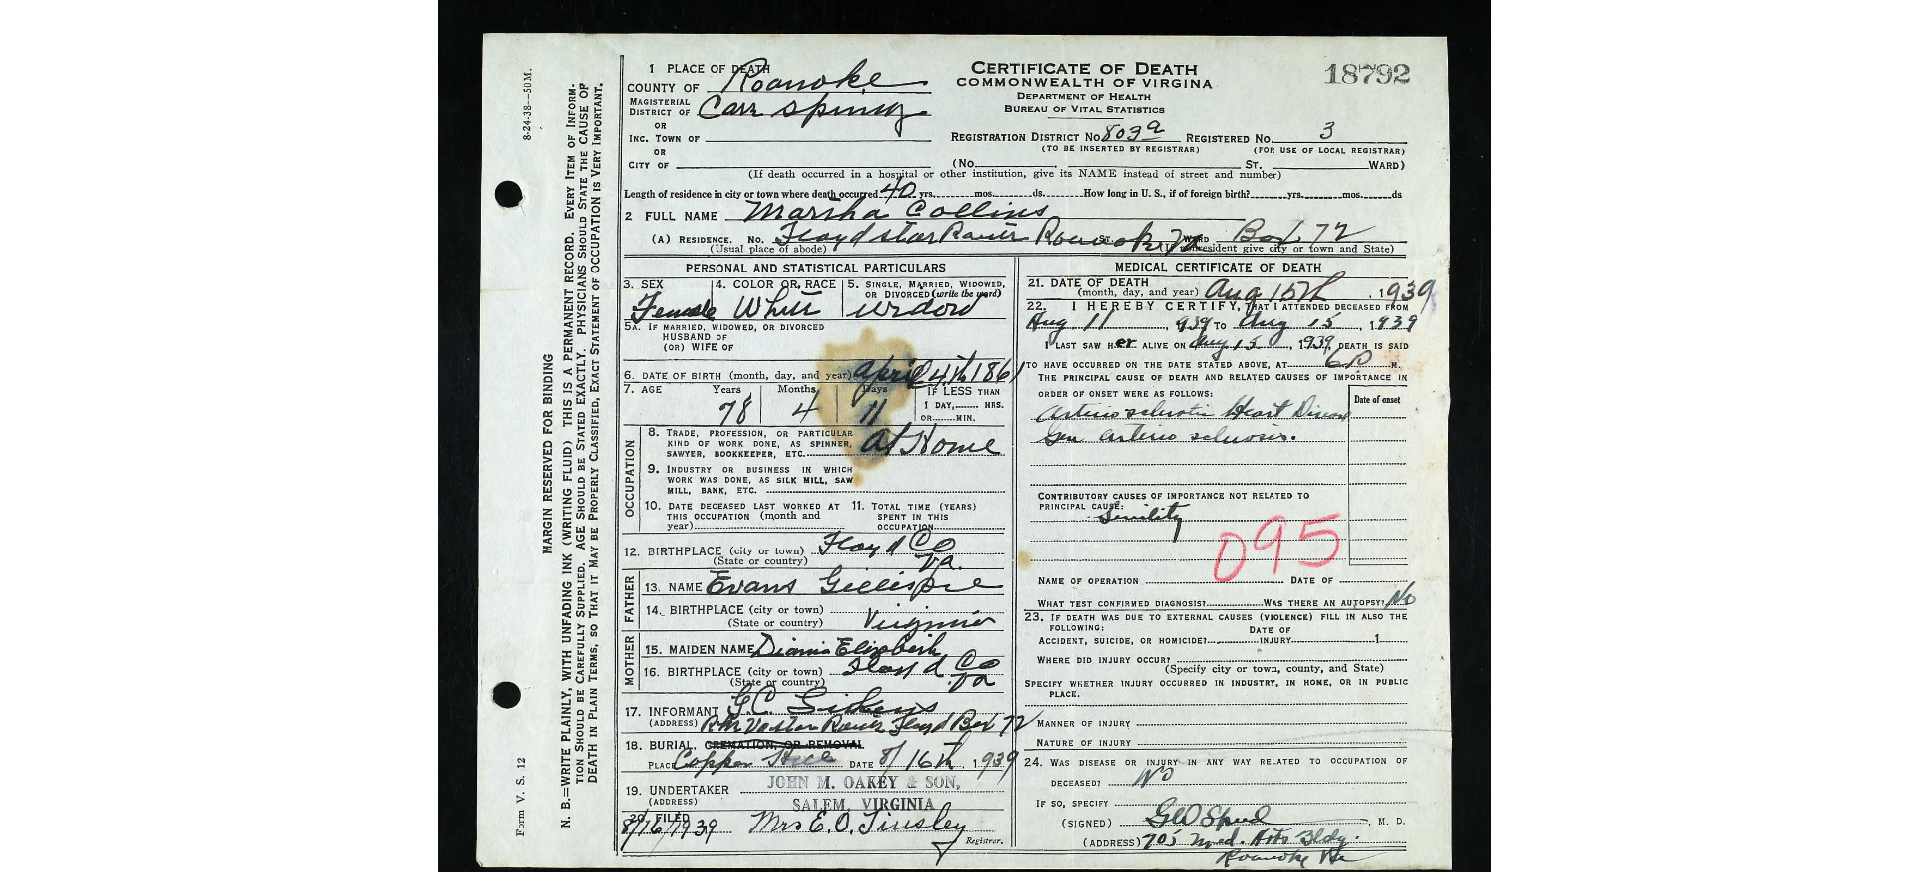 1 PLACE OF DEATH
COUNTY OF Roanoke
MAGISTERIAL DISTRICT OF
OR
INC. TOWN OF
OR
CITY OF
CERTIFICATE OF DEATH
COMMONWEALTH OF VIRGINIA
DEPARTMENT OF HEALTH
BUREAU OF VITAL STATISTICS
18792
REGISTRATION DISTRICT No. 803a REGISTERED No. 3
(TO BE INSERTED BY REGISTRAR) (FOR USE OF LOCAL REGISTRAR)
(No. ST. WARD)
(If death occurred in a hospital or other institution, give its NAME instead of street and number)
Length of residence in city or town where death occurred 40 yrs. mos. ds. How long in U. S., if of foreign birth? yrs. mos. ds
2 FULL NAME Martha Collins
(A) RESIDENCE. No. Floyd Roanoke ST. WARD Box 72
(Usual place of abode) (If nonresident give city or town and State)
PERSONAL AND STATISTICAL PARTICULARS
3. SEX Female
4. COLOR OR RACE White
5. SINGLE, MARRIED, WIDOWED, OR DIVORCED (write the word) widow
5A. IF MARRIED, WIDOWED, OR DIVORCED
HUSBAND OF
(OR) WIFE OF
6. DATE OF BIRTH (month, day, and year) April 4th 1861
7. AGE Years 78 Months 4 Days 11 IF LESS THAN
1 DAY, HRS.
OR MIN.
OCCUPATION
8. TRADE, PROFESSION, OR PARTICULAR
KIND OF WORK DONE, AS SPINNER,
SAWYER, BOOKKEEPER, ETC. At Home
9. INDUSTRY OR BUSINESS IN WHICH
WORK WAS DONE, AS SILK MILL, SAW
MILL, BANK, ETC.
10. DATE DECEASED LAST WORKED AT
THIS OCCUPATION (month and
year)
11. TOTAL TIME (YEARS)
SPENT IN THIS
OCCUPATION
12. BIRTHPLACE (city or town) Floyd Co
(State or country) Va.
FATHER
13. NAME Evans Gillespie
14. BIRTHPLACE (city or town)
(State or country) Virginia
MOTHER
15. MAIDEN NAME Elizabeth
16. BIRTHPLACE (city or town) Floyd Co
(State or country) Va
17. INFORMANT
(ADDRESS) Floyd Box 72
18. BURIAL, CREMATION, OR REMOVAL
PLACE Copper Hill DATE 8/16th, 1939
19. UNDERTAKER JOHN M. OAKEY & SON,
(ADDRESS) SALEM, VIRGINIA
20. FILED 8/16/1939 Mrs E. O. Tinsley
Registrar.
MEDICAL CERTIFICATE OF DEATH
21. DATE OF DEATH
(month, day, and year) Aug 15th, 1939
22. I HEREBY CERTIFY, THAT I ATTENDED DECEASED FROM
Aug 11, 1939 TO Aug 15, 1939
I LAST SAW HER ALIVE ON Aug 15, 1939, DEATH IS SAID
TO HAVE OCCURRED ON THE DATE STATED ABOVE, AT 6P M.
THE PRINCIPAL CAUSE OF DEATH AND RELATED CAUSES OF IMPORTANCE IN
ORDER OF ONSET WERE AS FOLLOWS:
Date of onset
Arteriosclerotic Heart Disease
Gen arterio sclerosis.
CONTRIBUTORY CAUSES OF IMPORTANCE NOT RELATED TO
PRINCIPAL CAUSE:
Senility
095
NAME OF OPERATION DATE OF
WHAT TEST CONFIRMED DIAGNOSIS? WAS THERE AN AUTOPSY? No
23. IF DEATH WAS DUE TO EXTERNAL CAUSES (VIOLENCE) FILL IN ALSO THE
FOLLOWING:
DATE OF
ACCIDENT, SUICIDE, OR HOMICIDE? INJURY 1
WHERE DID INJURY OCCUR?
(Specify city or town, county, and State)
SPECIFY WHETHER INJURY OCCURRED IN INDUSTRY, IN HOME, OR IN PUBLIC
PLACE.
MANNER OF INJURY
NATURE OF INJURY
24. WAS DISEASE OR INJURY IN ANY WAY RELATED TO OCCUPATION OF
DECEASED? No
IF SO, SPECIFY
(SIGNED) , M. D.
(ADDRESS) 705 Med. Arts Bldg.
Roanoke Va
8-24-38—50M.
MARGIN RESERVED FOR BINDING
Form V. S. 12
N. B.=WRITE PLAINLY, WITH UNFADING INK (WRITING FLUID) THIS IS A PERMANENT RECORD. EVERY ITEM OF INFORM-
TION SHOULD BE CAREFULLY SUPPLIED. AGE SHOULD BE STATED EXACTLY. PHYSICIANS SHOULD STATE THE CAUSE OF
DEATH IN PLAIN TERMS, SO THAT IT MAY BE PROPERLY CLASSIFIED, EXACT STATEMENT OF OCCUPATION IS VERY IMPORTANT.